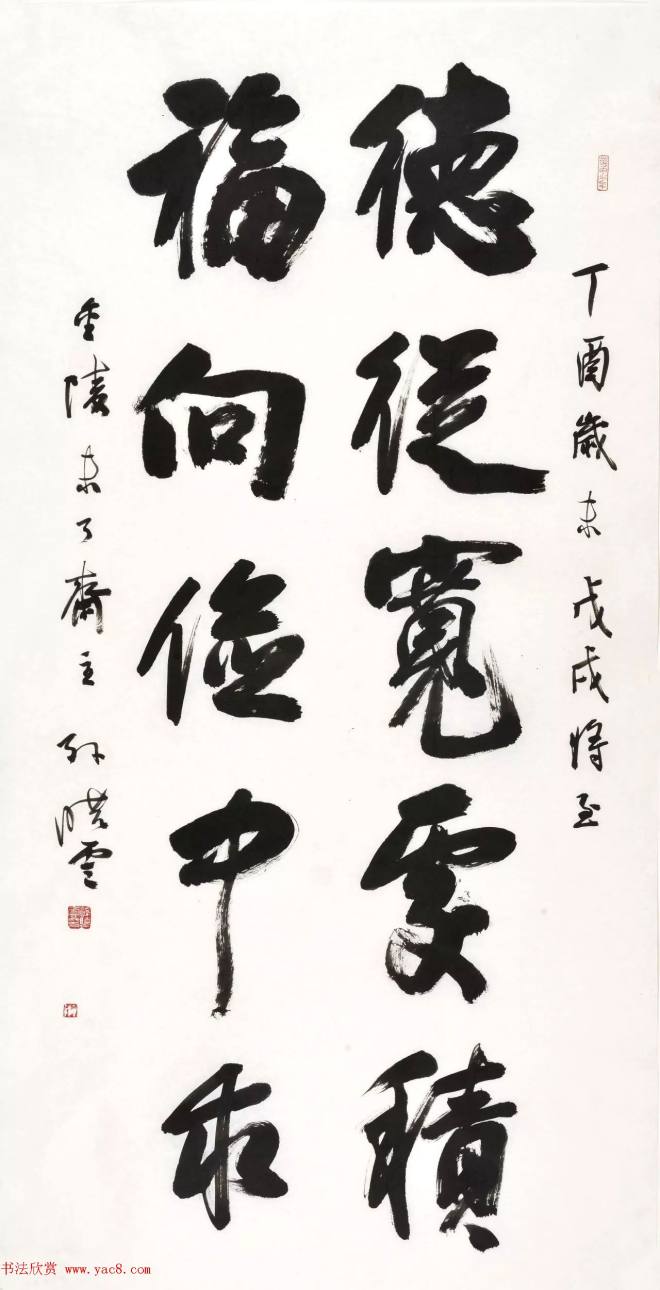 丁酉歲末戊戌將至
德從寬處積
福向儉中求
金陵末了齋主孫曉雲
书法欣赏 www.yac8.com